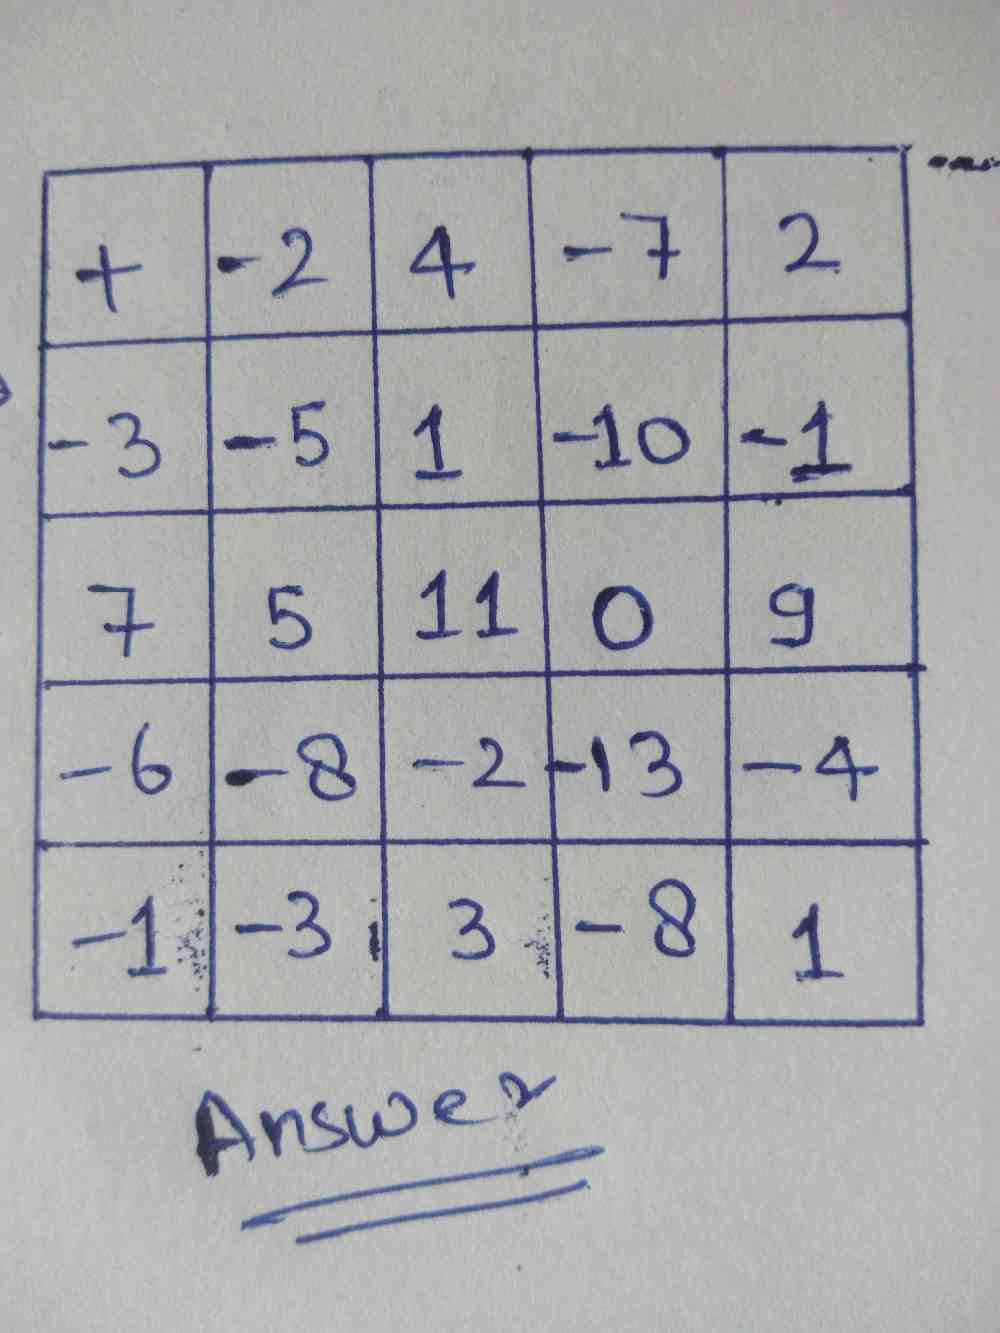 + -2 4 -7 2
-3 -5 1 -10 -1
7 5 11 0 9
-6 -8 -2 -13 -4
-1 -3 3 -8 1
Answer